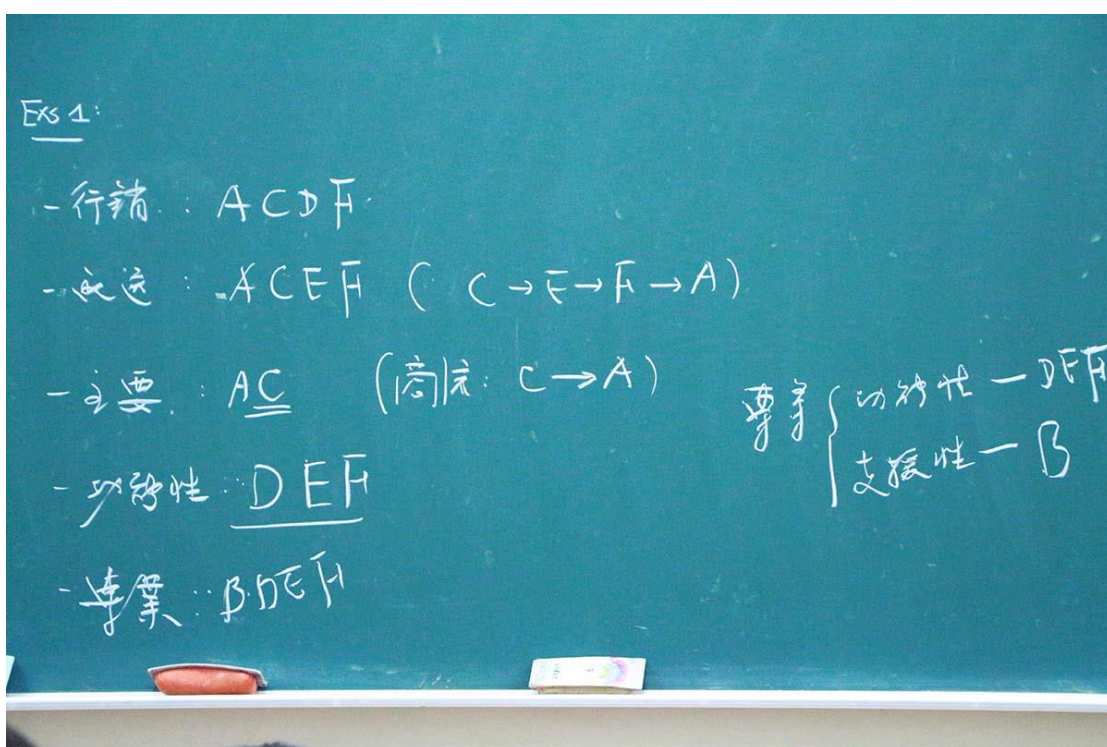 Exs 1:
- 行銷: ACDF
- : ACEF ( C→E→F→A)
- 主要: AC ( : C→A)
- 功能性: DEF
- 專業: BDEF
專業
功能性 — DEF
支援性 — B